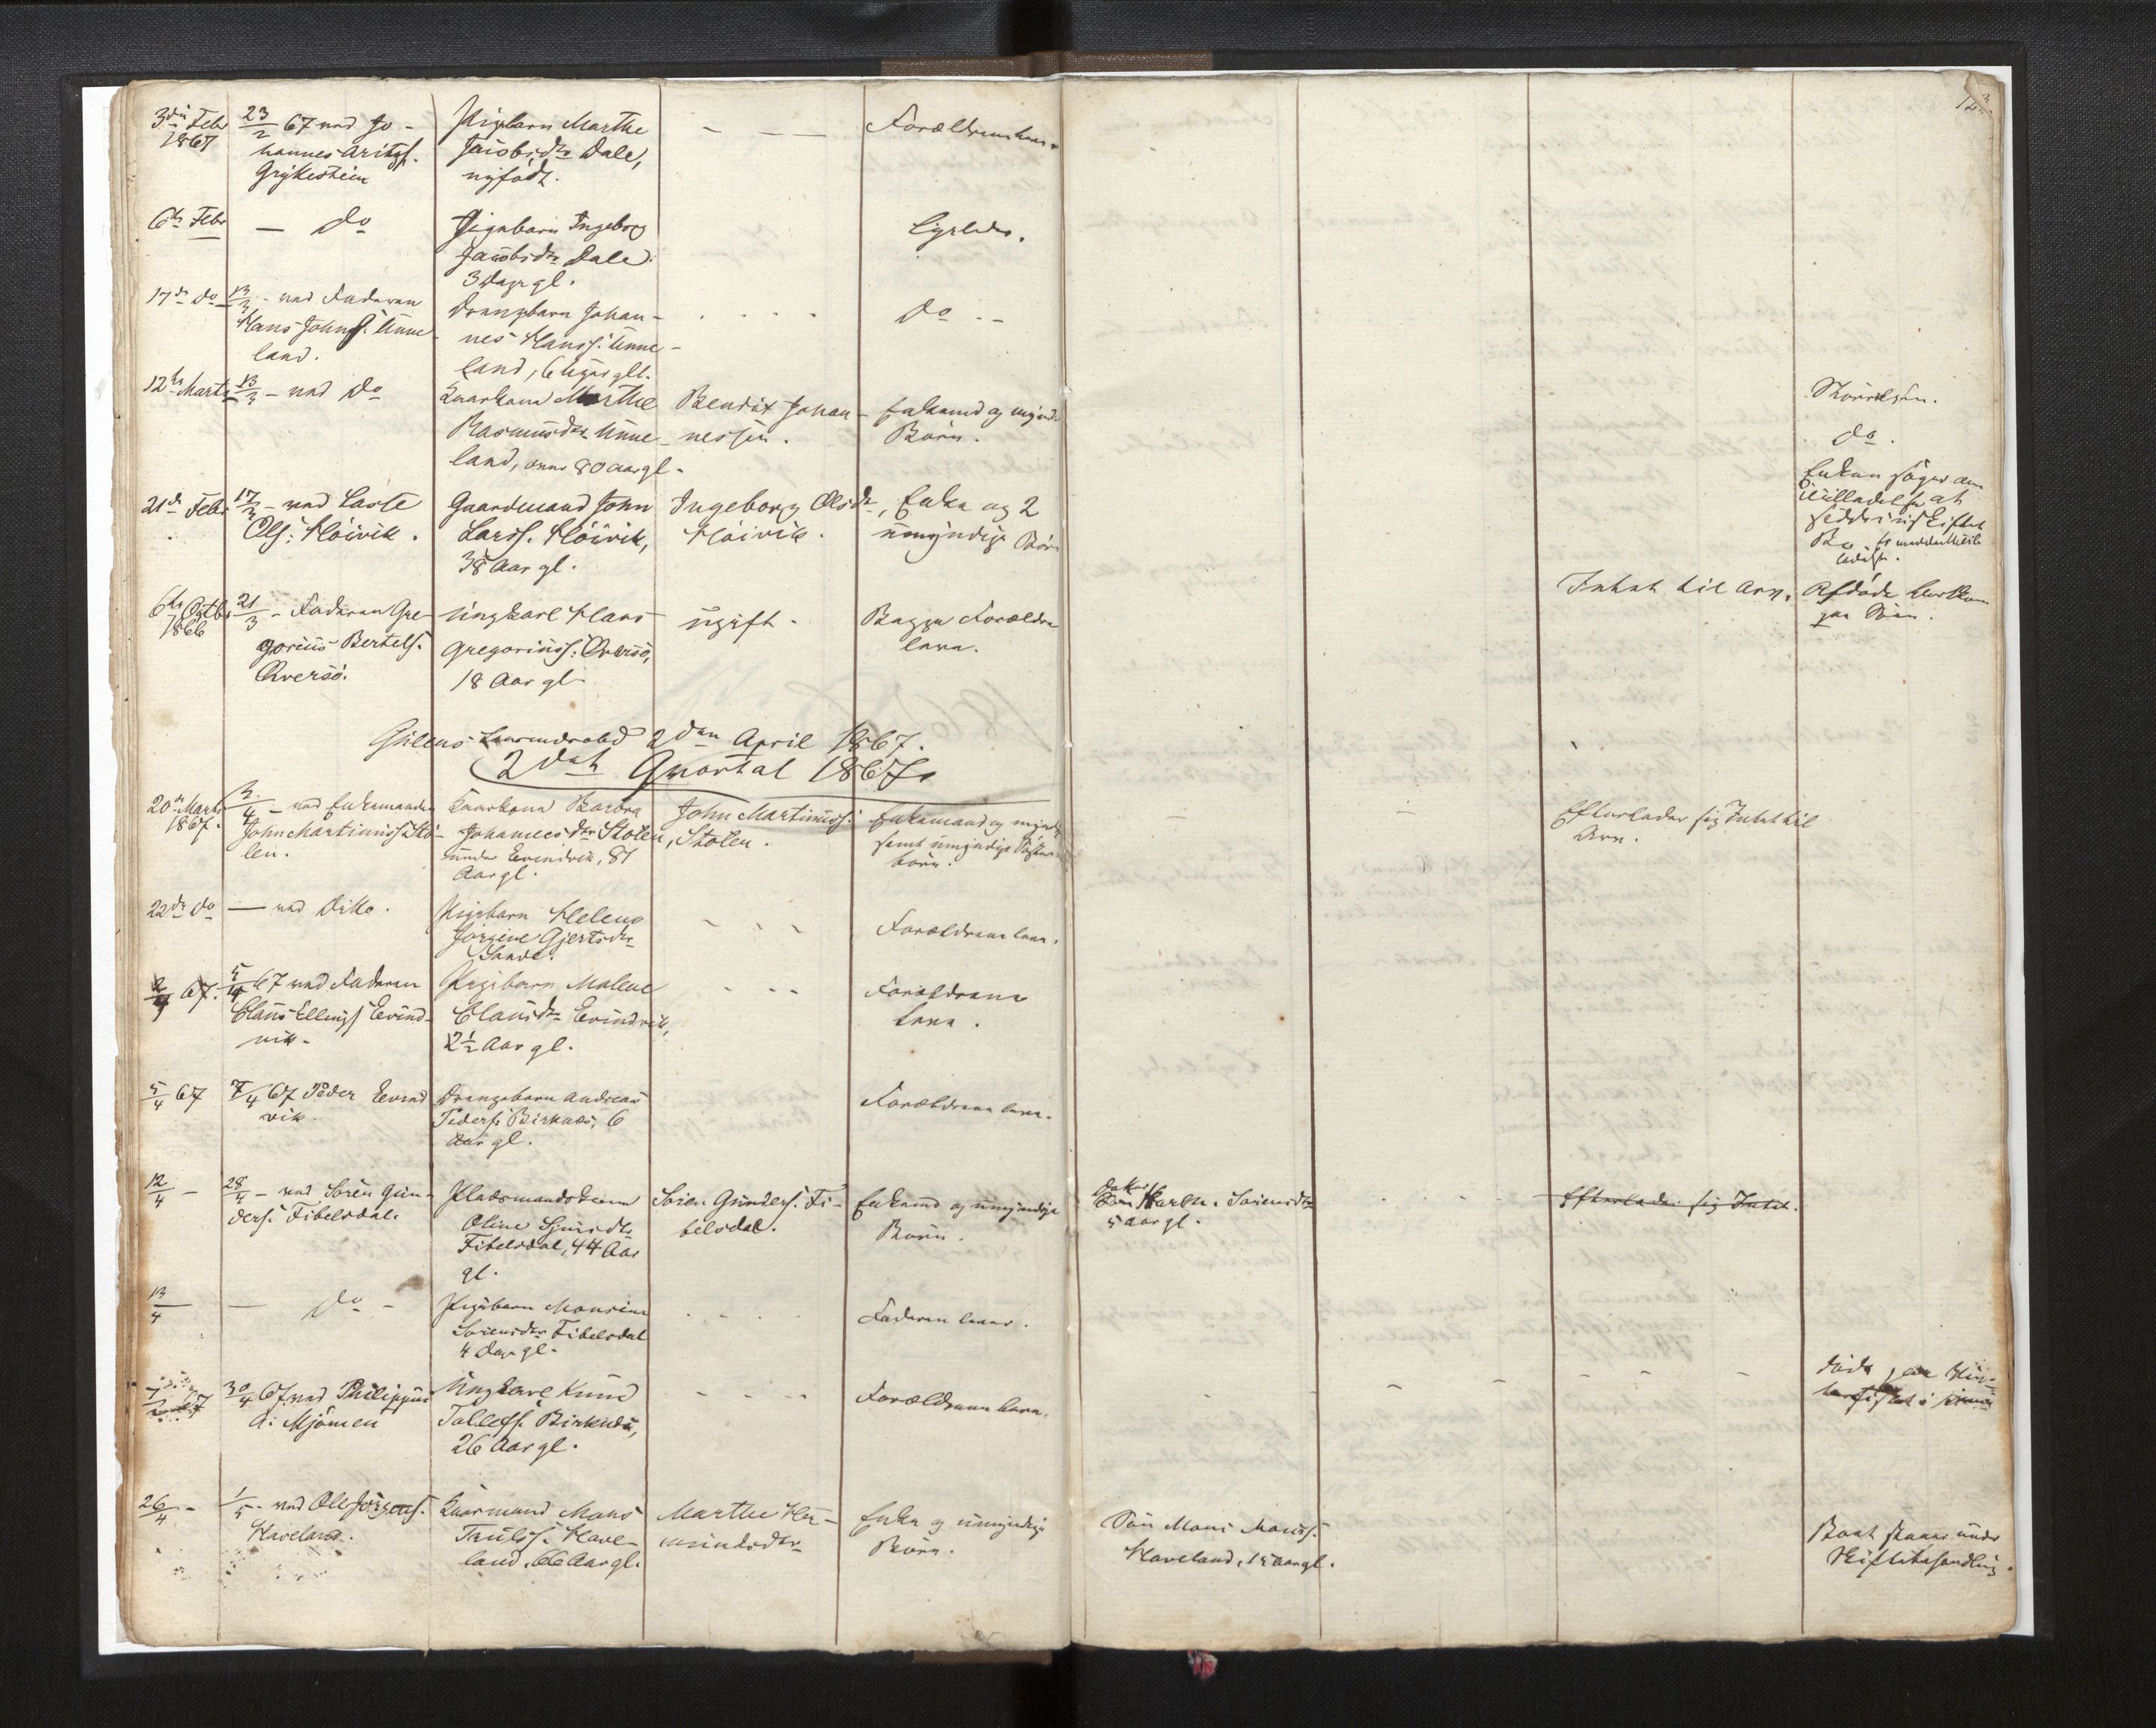 3die Febr
1867
23/2 67 ved Jo-
hannes Aritzs.
Grÿkestein
Pigebarn Marthe
Jacobsdr Dale,
nÿfødt.
- - -
Forældrene leve
6te Febr
— do
Pigebarn Ingeborg
Jacobsdr Dale
3 Dage gl.
Ligeledes.
17de do
13/3 - ved Faderen
Hans Johns. Unne-
land.
Drengebarn Johan-
nes Hanss. Unne-
land, 6 Uger gl.
. . . .
do . -
12te Marts
13/3 - ved do
Kaarkone Marthe
Rasmusdr Unne-
land, 80 Aar gl.
Bendix Johan-
nessen.
Enkemd og mynd.
Børn.
Skiøde
do.
21de Febr
17/3 - ved Lasse
Ols. Høivik.
Gaardmand John
Larss. Høivik,
38 Aar gl.
Ingeborg Olsdr
Høivik.
Enke og 2
umyndige Børn
Enken søger om
Tilladelse at
sidde i uskiftet
Bo
6te Octbr
1866
21/3 - Faderen Gre-
gorius Bertels.
Qversø.
Ungkarl Hans
Gregoriuss. Qversø,
18 Aar gl.
ugift.
Begge Forældre
leve.
Intet til Arv.
Afdøde
paa Søen.
Gulens Lensmandsbd 2den April 1867.
2det Qvartal 1867.
20de Marts
1867.
3/4 - ved Enkemanden
John Martinuss. Stø-
len.
Kaarkone Barbra
Johannesdr Stølen
under Evindvik, 81
Aar gl.
John Martinuss.
Stølen.
Enkemand og mynd.
samt umyndige
børn.
— —
Efterlader sig Intet til
Arv.
22de do
— ved Ditto.
Pigebarn Helene
Jørgine Gjertsdr
Sande.
- - -
Forældrene leve.
2/4 67.
5/4 67 ved Faderen
Claus Ellings Evind-
vik.
Pigebarn Malene
Clausdr Evindvik,
2½ Aar gl.
- - -
Forældrene
leve.
5/4 67
7/4 67 Peder Evind
vik.
Drengebarn Andreas
Peders. Birknæs, 6
Aar gl.
Forældrene leve.
12/4 -
28/4 - ved Søren Gun-
ders. Fibelsdal.
Pladsmandskone
Oline
Fibelsdal, 44 Aar
gl.
Søren Gunders. Fi-
belsdal.
Enkemd og umyndige
Børn.
Datter
Marthe Sørensdr
5 Aar gl.
. . . .
Efterlader sig Intet.
13/4
— do -
Pigebarn Monsine
Sørensdr Fibelsdal
4 Dage gl.
. . . .
Faderen lever.
7/2 67
30/4 67 ved Philippus
A. Mjømen
Ungkarl Knud
Tollefs. Birknæs,
26 Aar gl.
- - - -
Forældrene leve.
- - - - - -
døde paa Vin-
terfisket i
26/4 -
1/5 - ved Ole Jørgens.
Haveland.
Kaarmand Mons
Truls. Have-
land, 66 Aar gl.
Marthe Her-
mundsdr
Enke og umyndige
Børn.
Søn Mons Monss.
Haveland, 18 Aar gl.
Boet staaer under
Skiftebehandling.